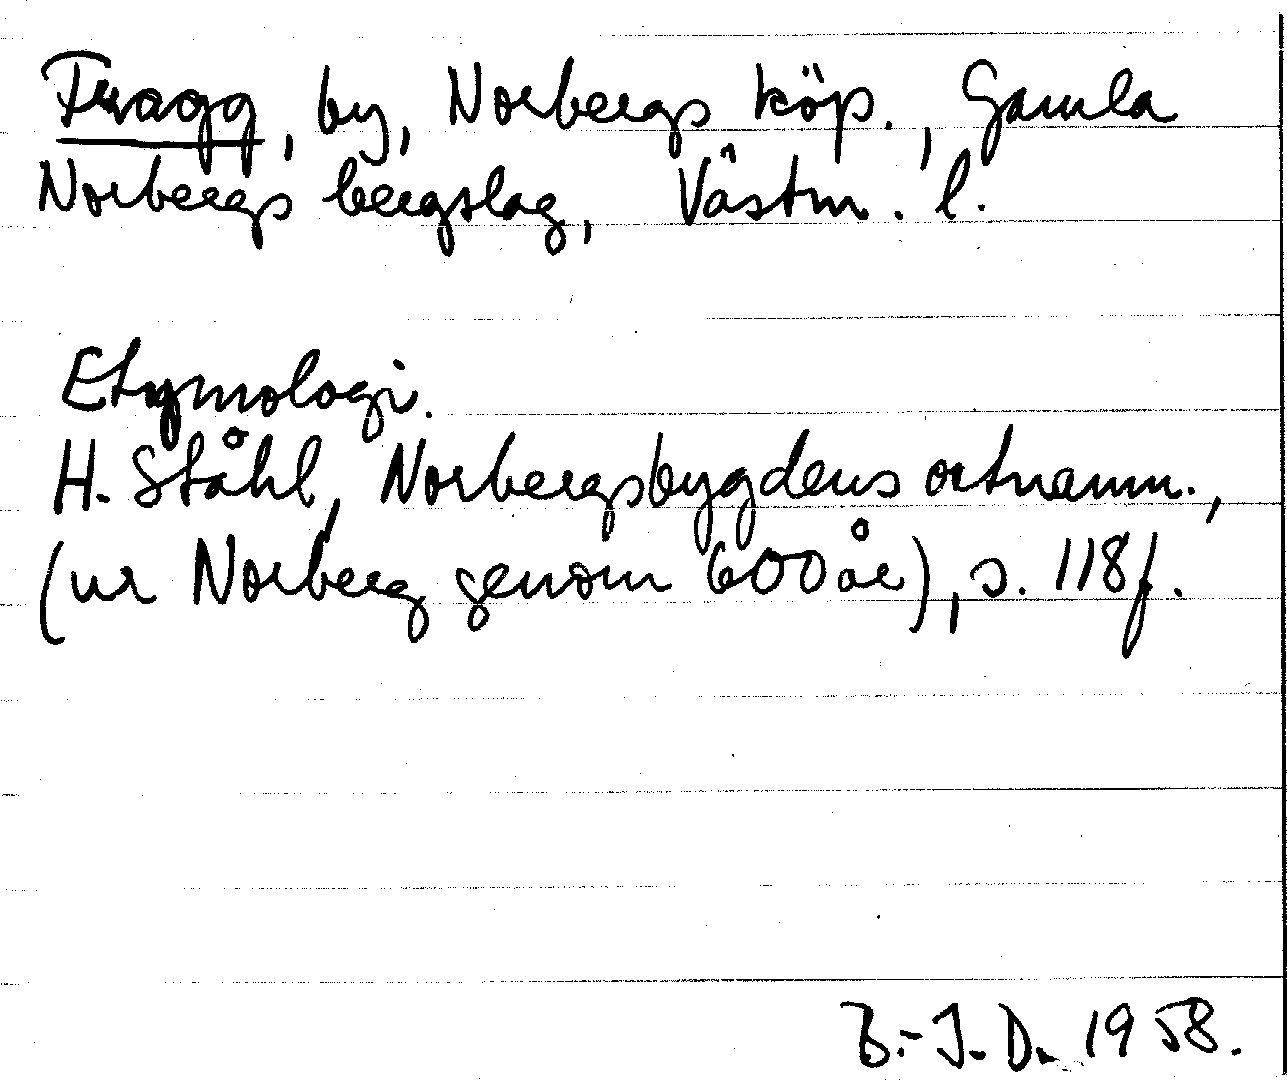 Fragg, by, Norbergs köp., Gamla
Norbergs bergslag, Västm. l.
Etymologi.
H. Ståhl, Norbergsbygdens ortnamn.,
(ur Norberg genom 600 år), s. 118f.
B.-I. D. 1958.